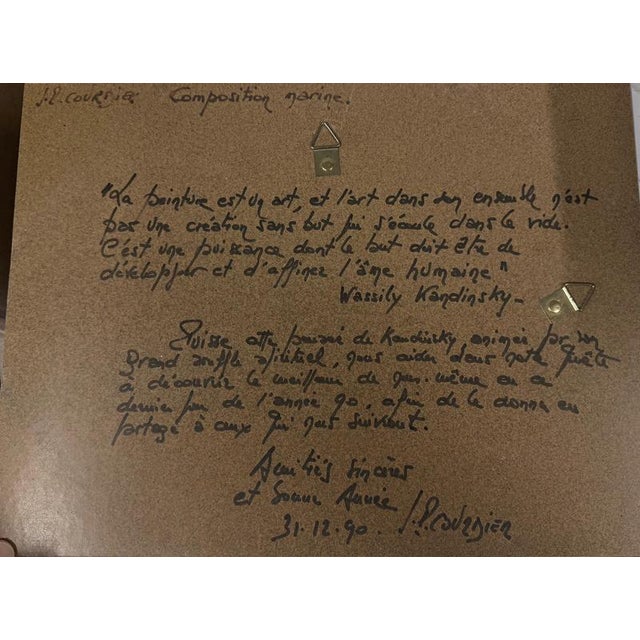 J.P. COURDIER Composition marine.
"La peinture est un art, et l'art dans son ensemble n'est
pas une création sans but qui s'écoule dans le vide.
C'est une puissance dont le but doit être de
développer et d'affiner l'âme humaine"
Wassily Kandinsky -
Puisse cette pensée de Kandinsky, animée par son
grand souffle spirituel, nous aider dans notre quête
à découvrir le meilleur de nous-même en ce
dernier jour de l'année 90, afin de le donner en
partage à ceux qui nous suivront.
Amitiés sincères
et Bonne Année
31.12.90. J.P. COURDIER